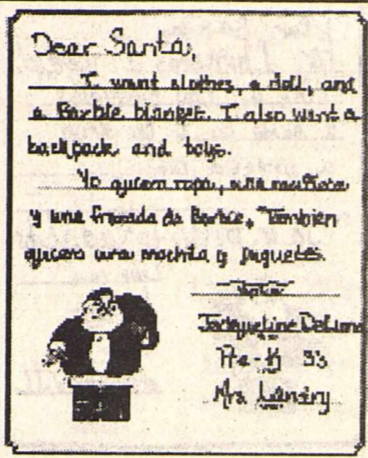 Dear Santa,
I want clothes, a doll, and
a Barbie blanket. I also want a
backpack and toys.
Yo quiero ropa, una muñeca
y una frazada de Barbie. Tambien
quiero una mochila y juguetes.
Jacqueline
Pre-K 3's
Mrs. Landry